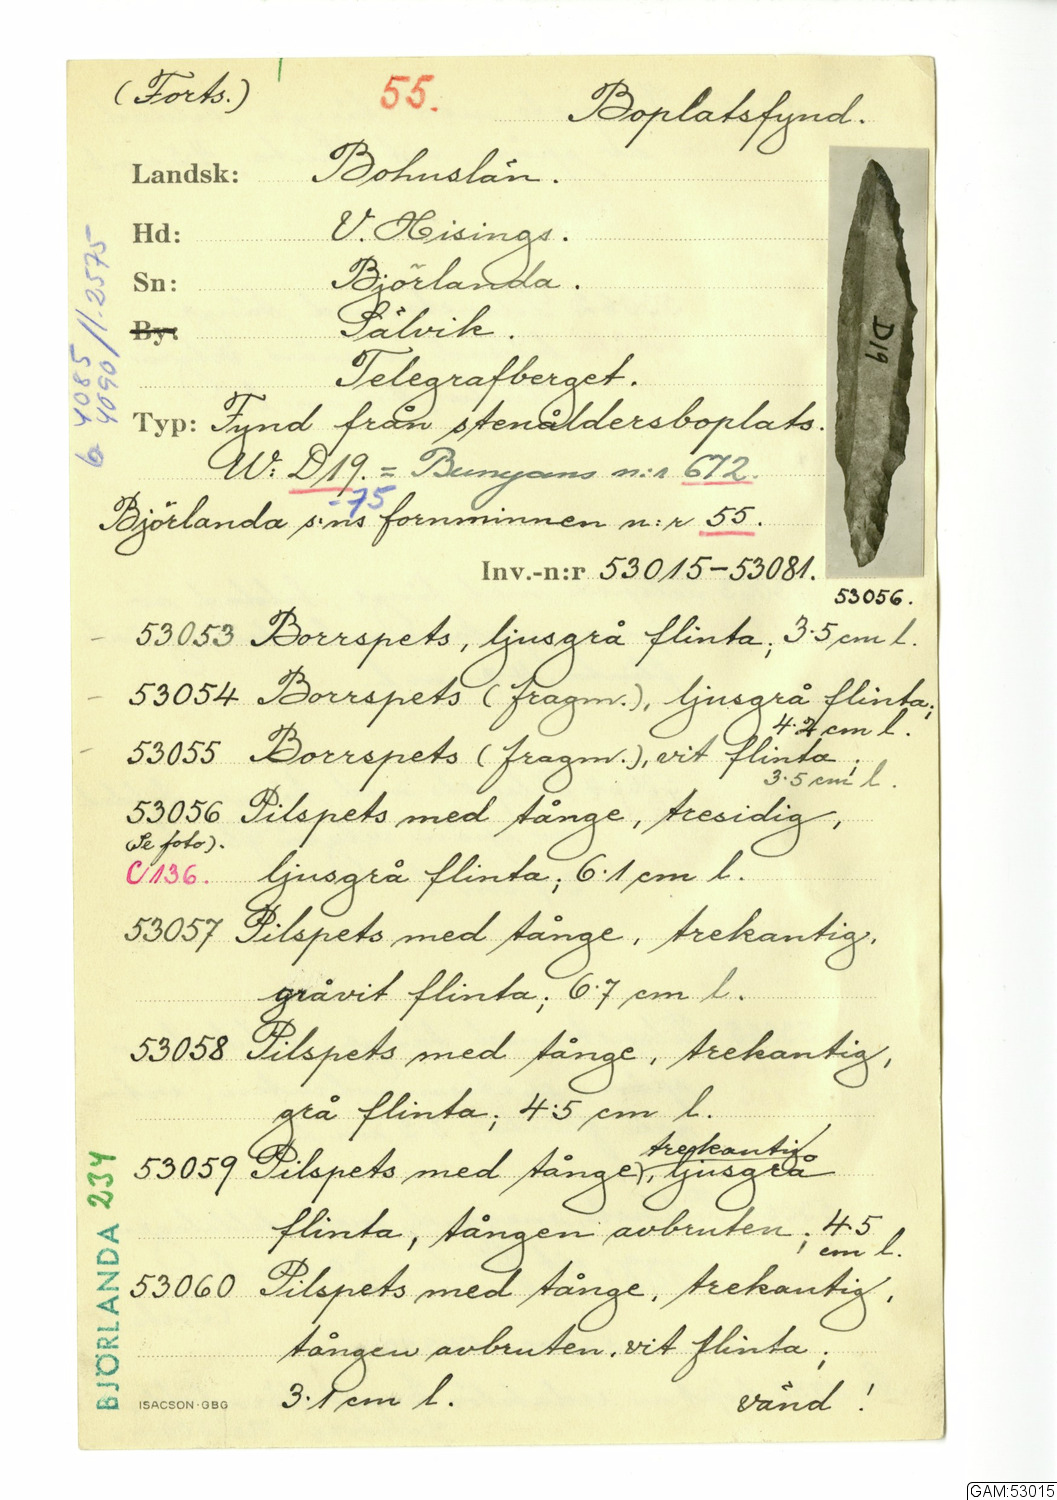 (Forts.) 55. Boplatsfynd.
Landsk: Bohuslän.
Hd: V. Hisings.
Sn: Björlanda.
By: Sälvik.
Telegrafberget.
Typ: Fynd från stenåldersboplats.
W: D19. = Bunyans n:r 672.
-75
Björlanda s:ns fornminnen n:r 55.
Inv.-n:r 53015-53081.
D19
53056.
4085
4090 / 1-2575
53053 Borrspets, ljusgrå flinta; 3.5 cm l.
53054 Borrspets (fragm.), ljusgrå flinta;
4.2 cm l.
53055 Borrspets (fragm.), vit flinta;
3.5 cm l.
53056 Pilspets med tånge, tresidig,
(Se foto).
C136. ljusgrå flinta; 6.1 cm l.
53057 Pilspets med tånge, trekantig,
gråvit flinta; 6.7 cm l.
53058 Pilspets med tånge, trekantig,
grå flinta; 4.5 cm l.
trekantig
53059 Pilspets med tånge), ljusgrå
flinta, tången avbruten; 4.5
cm l.
53060 Pilspets med tånge, trekantig,
tången avbruten. vit flinta;
3.1 cm l. vänd!
BJÖRLANDA 234
ISACSON·GBG
GAM:53015